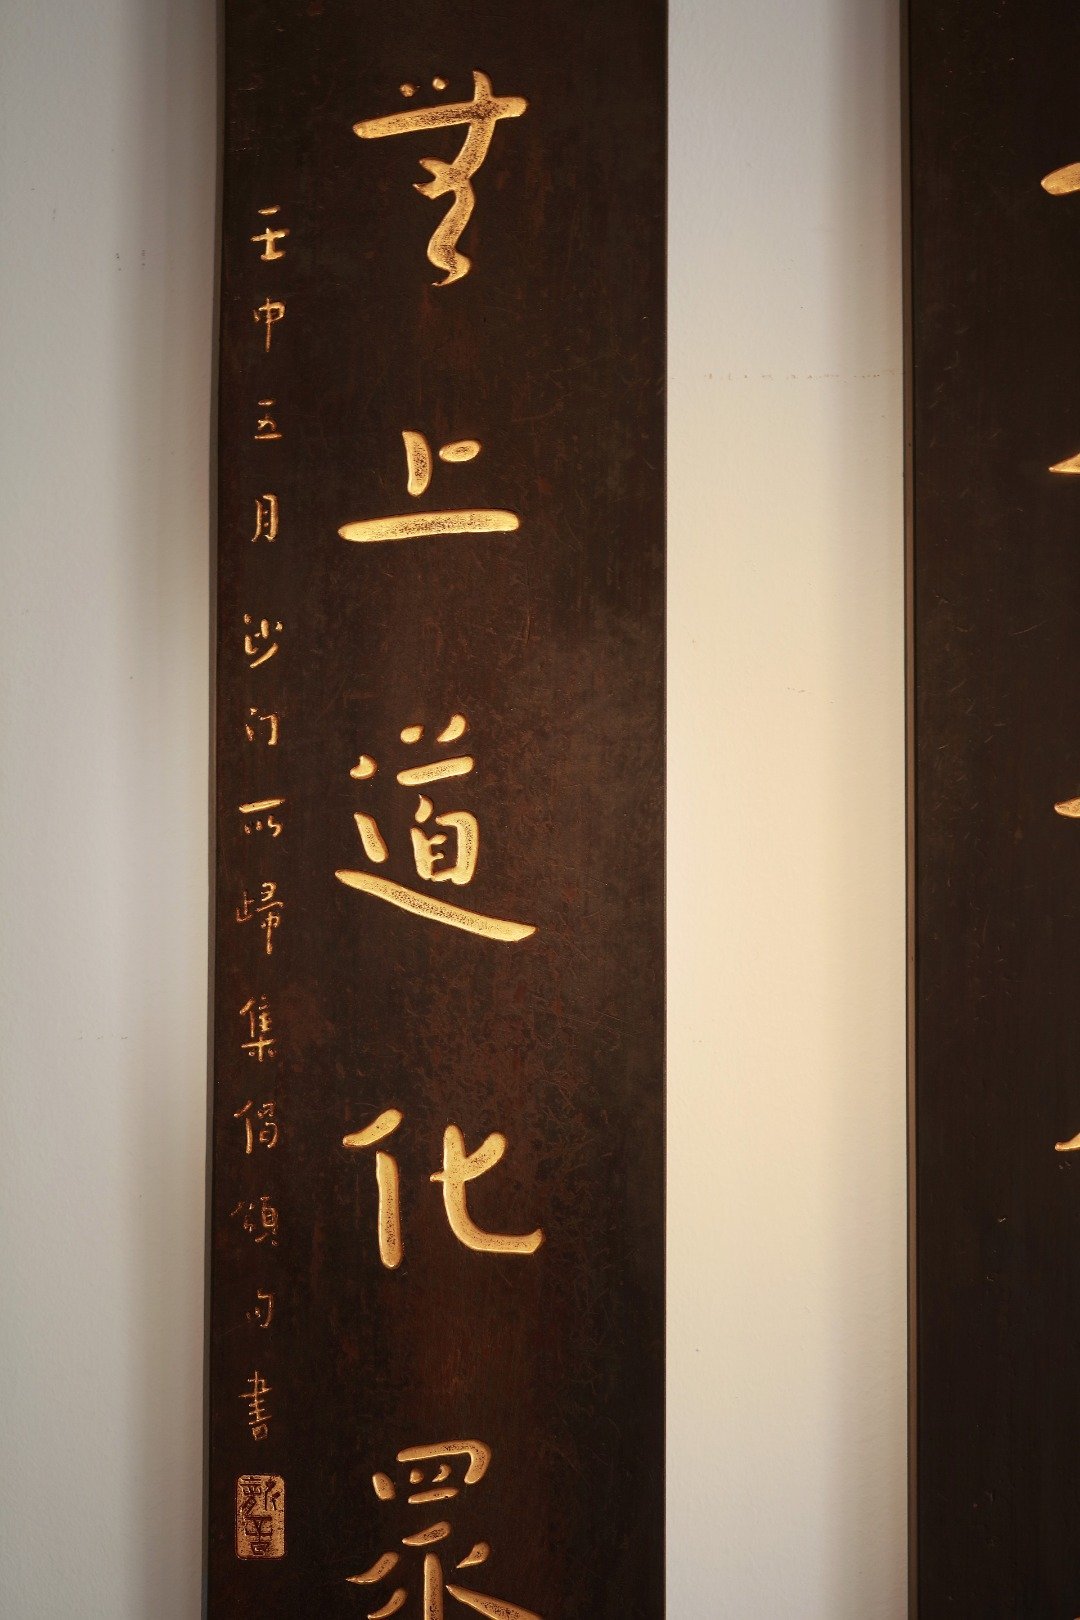 無上道化眾
壬申五月沙门所歸集偈頌句書